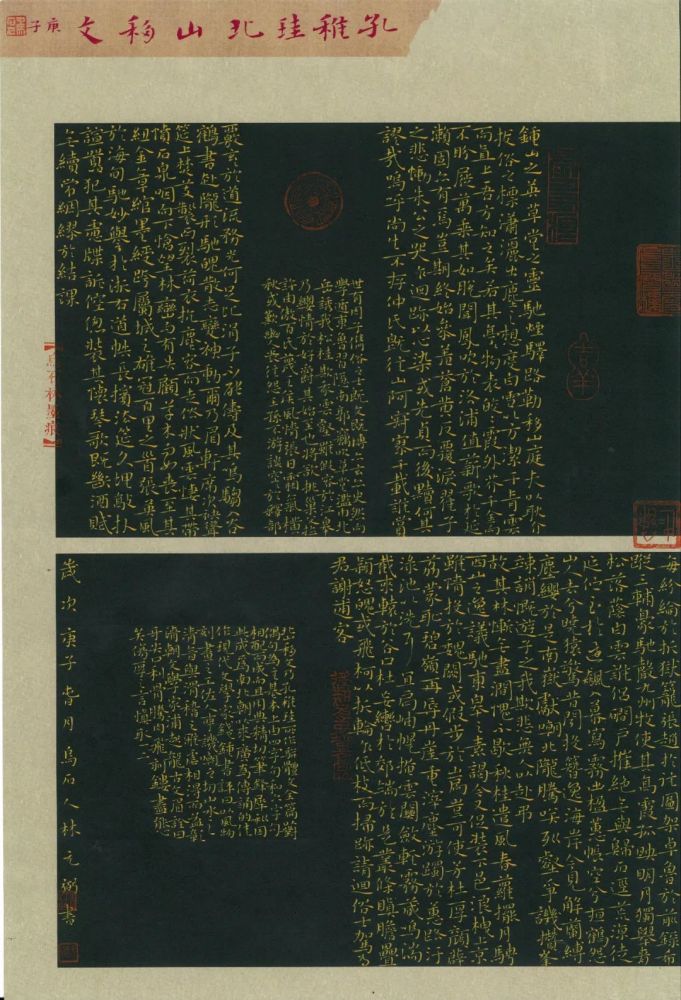 孔稚珪北山移文
庚子
鍾山之英草堂之靈馳煙驛路勒移山庭夫以耿介
拔俗之標瀟灑出塵之想度白雪以方潔干青雲
而直上吾方知之矣若其亭亭物表皎皎霞外芥千金
而不盼屣萬乘其如脫聞鳳吹於洛浦值薪歌於延
瀨固亦有焉豈期終始參差蒼黃反覆淚翟子
之悲慟朱公之哭乍迴跡以心染或先貞而後黷何其
謬哉嗚乎尚生不存仲氏既往山阿寂寥千載誰賞
世有周子雋俗之士既文既博亦玄亦史然而
學遁東魯習隱南郭竊吹草堂濫巾北
岳誘我松桂欺我雲壑雖假容於江皋
乃纓情於好爵其始至也將欲排巢父拉
許由傲百氏蔑王侯風情張日霜氣橫
秋或歎幽人長往或怨王孫不游談空空於釋部
覈玄玄於道流務光何足比涓子不能儔及其鳴騶入谷
鶴書赴隴形馳魄散志變神動爾乃眉軒席次袂聳
筵上焚芰製而裂荷衣抗塵容而走俗狀風雲悽其帶
憤石泉咽而下愴望林巒而有失顧草木而如喪至其
組金章綰墨綬跨屬城之雄冠百里之首張英風
於海甸馳妙譽於浙右道帙長擯法筵久埋敲扑
諠囂犯其慮牒訴倥傯裝其懷琴歌既斷酒賦
無續常綢繆於結課
烏石林墨痕
每紛綸於折獄籠張趙於往圖架卓魯於前籙希
蹤三輔豪馳聲九州牧使其高霞孤映明月獨舉青
松落蔭白雲誰侶澗戶摧絕無與歸石逕荒涼徒
延佇至於還飆入幕寫霧出楹蕙帳空兮夜鶴怨
山人去兮曉猿驚昔聞投簪逸海岸今見解蘭縛
塵纓於是南嶽獻嘲北隴騰笑列壑爭譏攢峯
竦誚慨遊子之我欺悲無人以赴弔
故其林慚無盡澗愧不歇秋桂遣風春蘿擺月騁
西山之逸議馳東皋之素謁今又促裝下邑浪栧上京
雖情投於魏闕或假步於山扃豈可使芳杜厚顏薜
荔蒙恥碧嶺再辱丹崖重滓塵游躅於蕙路汙
淥池以洗耳宜扃岫幌掩雲關斂輕霧藏鳴湍
截來轅於谷口杜妄轡於郊端於是叢條瞋膽疊
穎怒魄或飛柯以折輪乍低枝而掃跡請迴俗士駕為
君謝逋客
北山移文乃孔稚珪所作駢體文全篇對
偶句為主基本上由四字句和六字句
相配合成而且用典精切筆鋒犀利因
此成為南北朝以來廣為傳誦的佳
作現代文學家錢鍾書評曰風物
刻畫之工佐人事譏嘲之切山水之
清音與滑稽之雅謔相得而益彰
清朝文學家浦起龍古文眉詮曰
歲次庚子杏月烏石人林元弼書